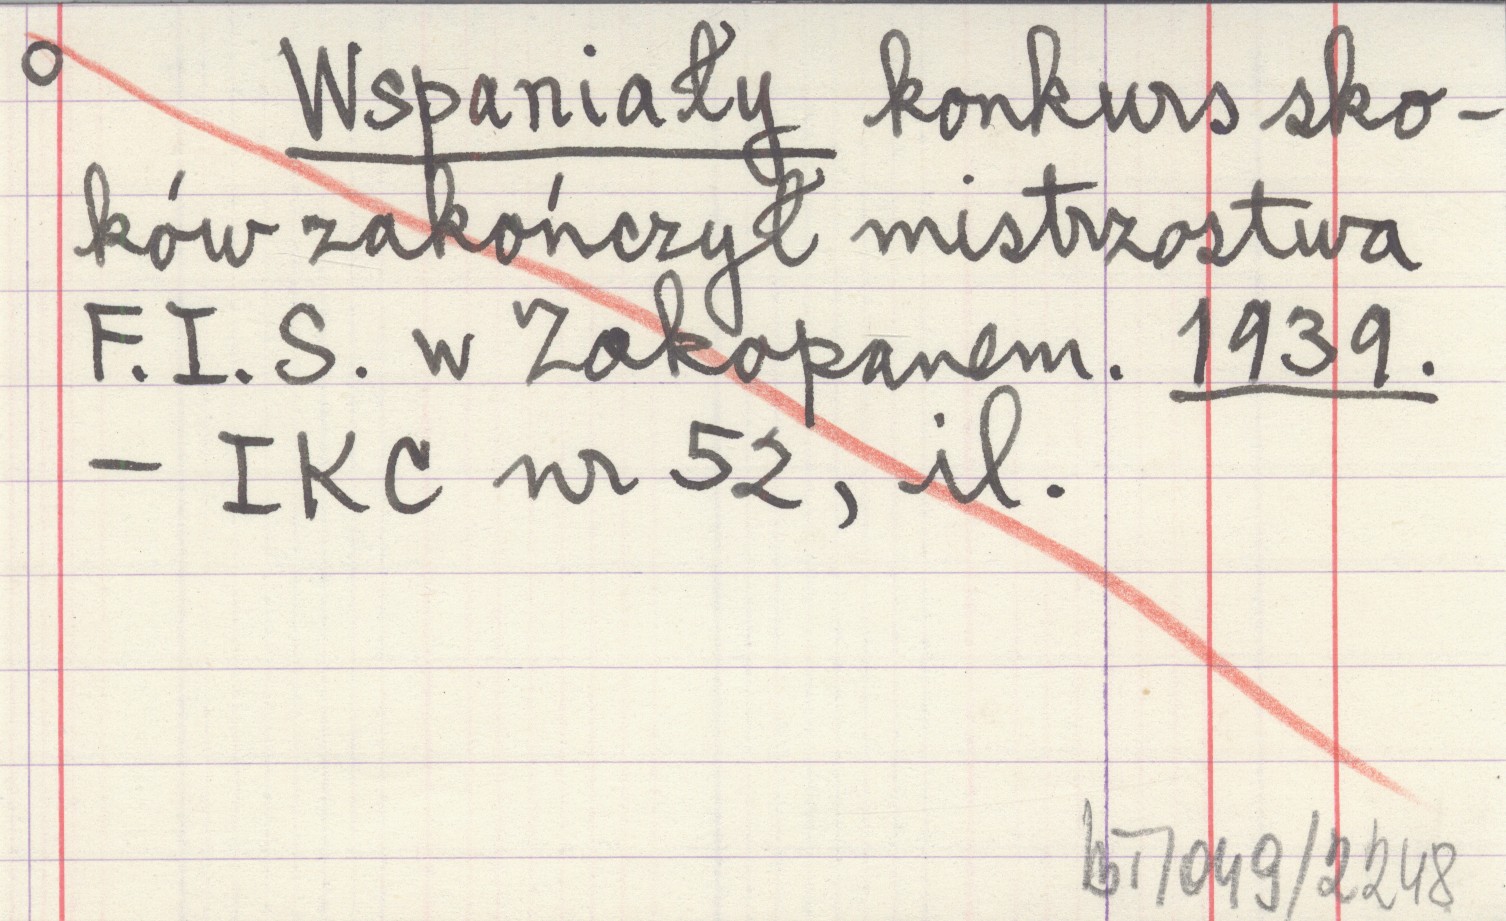 Wspaniały konkurs sko-
ków zakończył mistrzostwa
F.I.S. w Zakopanem. 1939.
– IKC nr 52, il.
bT/049/2248